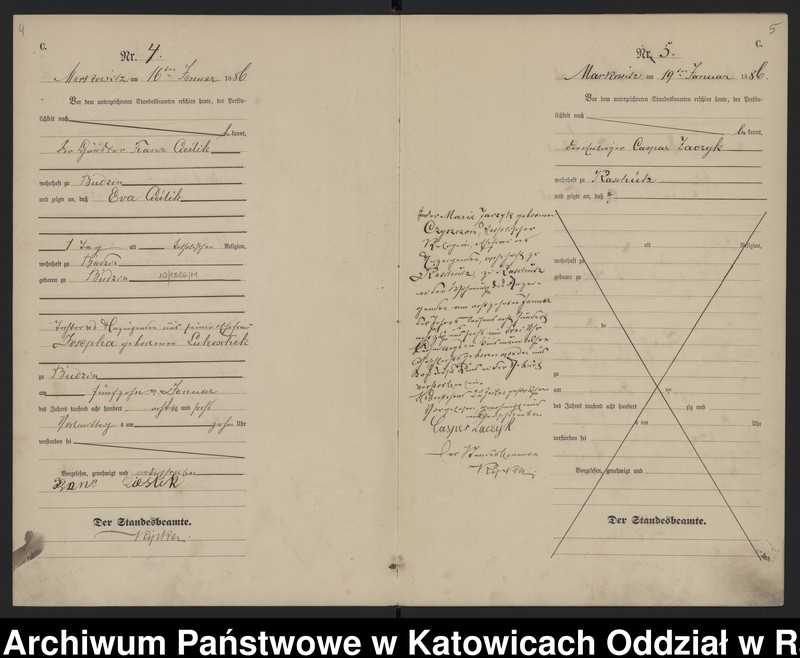 4
C.
Nr. 4.
Markowitz am 16ten Januar 1886
Vor dem unterzeichneten Standesbeamten erschien heute, der Persön-
lichkeit nach
be kannt,
der Häusler Franz Cieślik
wohnhaft zu Budzin
und zeigte an, daß Eva Cieślik
1 Tag alt katholischen Religion,
wohnhaft zu Budzin
geboren zu Budzin
Tochter des Anzeigenden und seiner Ehefrau
Josepha geborenen Lukoschek
zu Budzin
am fünfzehn ten Januar
des Jahres tausend acht hundert achtzig und sechs
Vormittags um zehn Uhr
verstorben sei
Vorgelesen, genehmigt und unterschrieben
Franz Cieslik
Der Standesbeamte.
5
C.
Nr. 5.
Markowitz am 19ten Januar 1886.
Vor dem unterzeichneten Standesbeamten erschien heute, der Persön-
lichkeit nach
be kannt,
Caspar Zaczyk
wohnhaft zu Raschütz
und zeigte an, daß
alt Religion,
wohnhaft zu
geboren zu
de
zu
am ten
des Jahres tausend acht hundert zig und
um Uhr
verstorben sei
Vorgelesen, genehmigt und
Der Standesbeamte.
der Marie Zaczyk geborenen
Czyszczon, katholischer
Religion, Ehefrau des
Anzeigenden, wohnhaft zu
Raschütz, zu Raschütz
in der Wohnung des Anzei-
genden am achtzehnten Januar
des Jahres tausend acht hundert
achtzig und sechs um drei Uhr
männlichen
Geschlechts geboren worden und
Kind in der Geburt
verstorben sei.
Vorgelesen, genehmigt und
unterschrieben
Casper Zaczyk
Der Standesbeamte
Archiwum Państwowe w Katowicach Oddział w R